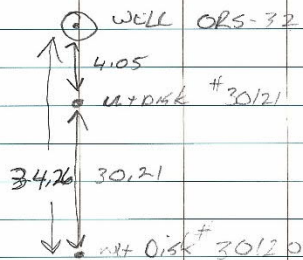 WELL ORS-32
4.05
Mt Disk #30121
34.26 30.21
Mt Disk # 30120